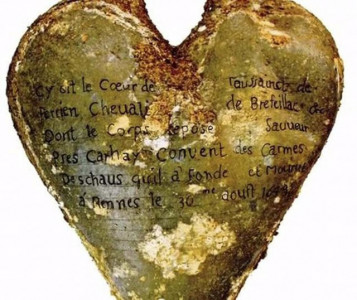 Cy Git le Coeur de Toussainct de
Perrien Chevali de Brefeillac
Dont le Corps Repose Sauveur
Pres Carhay Convent des Carmes
Deschaus quil à Fonde et Mourut
à Rennes le 30 aoust